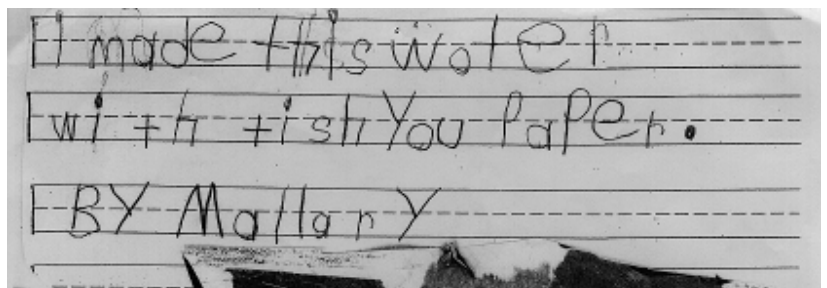 I made this water
with tish You PaPer.
BY MallarY